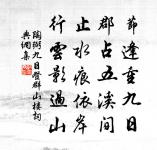 節逢重九日
郡占五溪間
止水痕依岸
行雲影過山
陶弼九日登群山樓詞